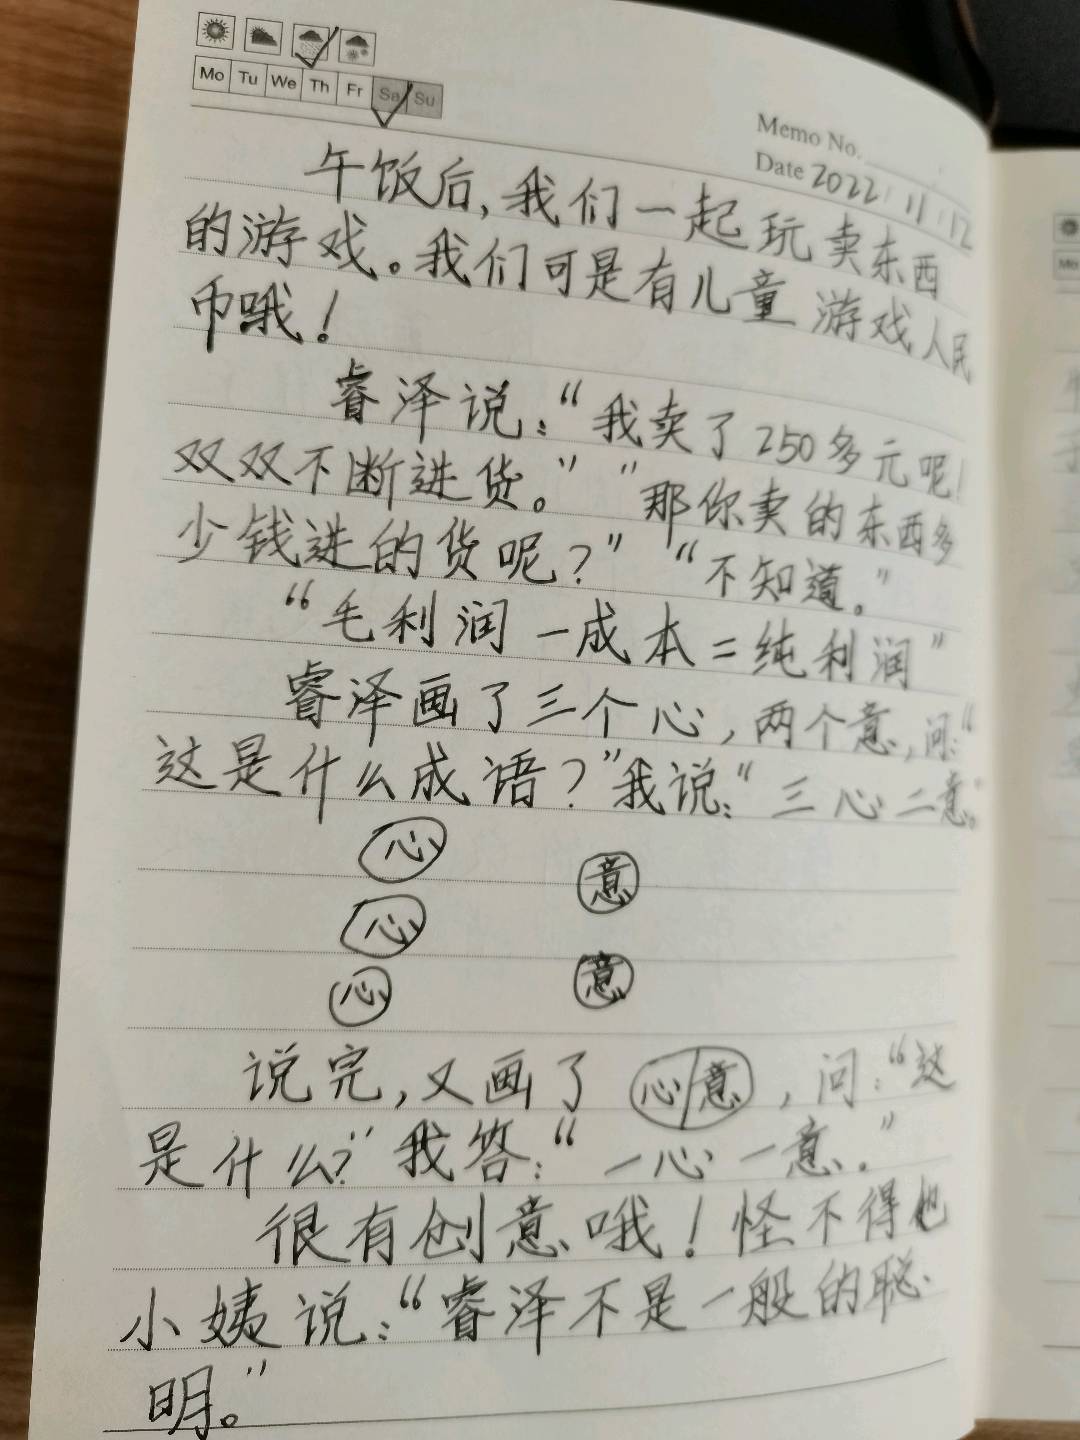 Mo Tu We Th Fr Sa Su
Memo No.
Date 2022 11 12
午饭后,我们一起玩卖东西
的游戏。我们可是有儿童游戏人民
币哦!
睿泽说:“我卖了250多元呢!
双双不断进货。” “那你卖的东西多
少钱进的货呢?” “不知道。”
“毛利润-成本=纯利润”
睿泽画了三个心,两个意,问:“
这是什么成语?”我说:“三心二意。”
心
意
心
心
意
说完,又画了 心意 ,问:“这
是什么?”我答:“一心一意.”
很有创意哦!怪不得他
小姨说:“睿泽不是一般的聪
明。”